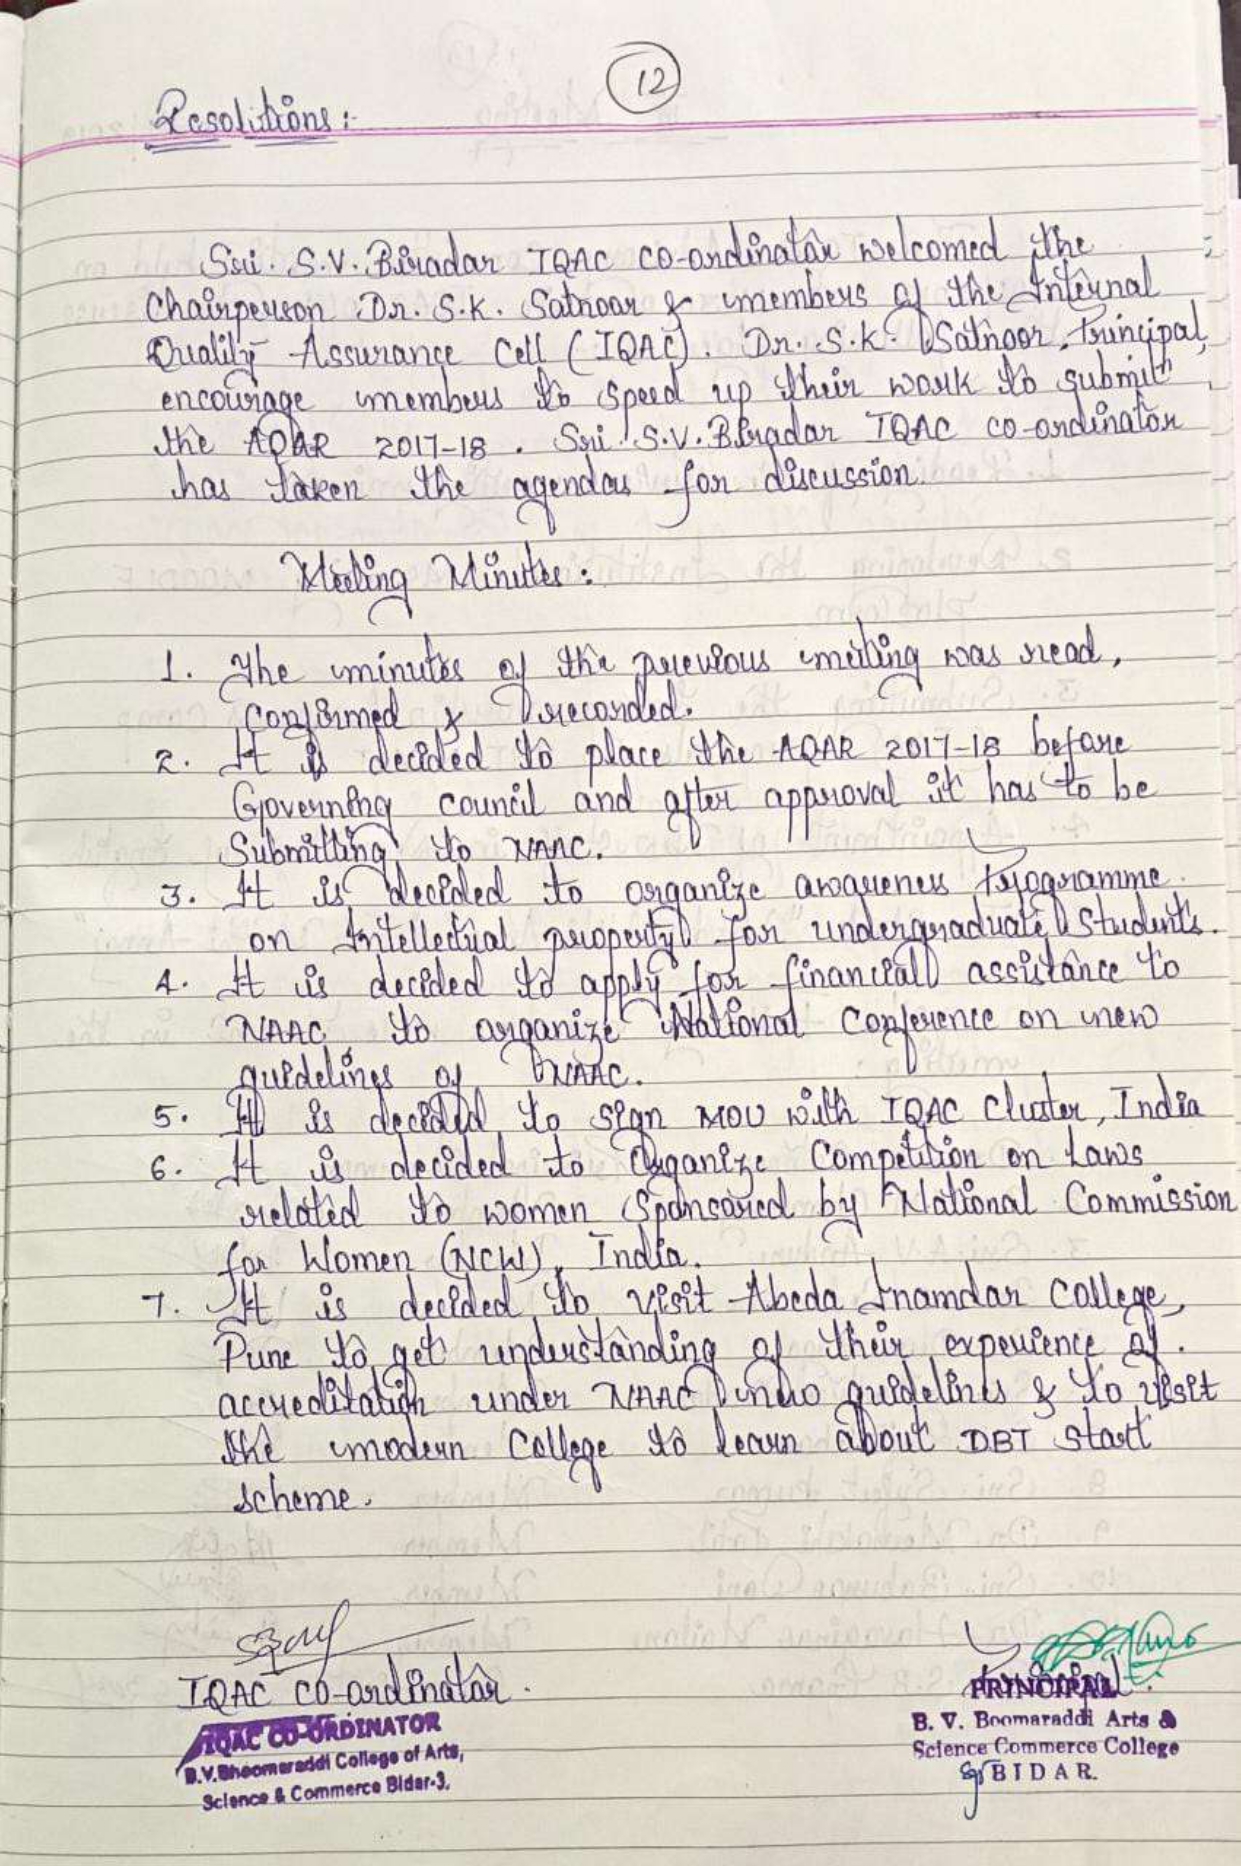 12
Resolutions :
Sri. S.V. Biradar IQAC co-ordinator welcomed the
Chairperson Dr. S.K. Satnoor & members of the Internal
Quality Assurance Cell (IQAC). Dr. S.K. Satnoor, Principal,
encourage members to speed up their work to submit
the AQAR 2017-18 . Sri. S.V. Biradar IQAC co-ordinator
has taken the agendas for discussion.
Meeting Minutes :
1. The minutes of the previous meeting was read,
confirmed & recorded.
2. It is decided to place the AQAR 2017-18 before
Governing council and after approval it has to be
Submitting to NAAC.
3. It is decided to organize awareness Programme
on Intellectual property for undergraduate students.
4. It is decided to apply for financial assistance to
NAAC to organize National Conference on new
guidelines of NAAC.
5. It is decided to sign MOU with IQAC Cluster, India
6. It is decided to Organize Competition on Laws
related to women Sponsored by National Commission
for Women (NCW), India.
7. It is decided to visit Abeda Inamdar College,
Pune to get understanding of their experience of
accreditation under NAAC new guidelines & to visit
the modern College to learn about DBT start
scheme.
IQAC co-ordinator.
IQAC CO-ORDINATOR
B.V.Bhoomaraddi College of Arts,
Science & Commerce Bidar-3.
Principal.
PRINCIPAL
B. V. Boomaraddi Arts &
Science Commerce College
BIDAR.